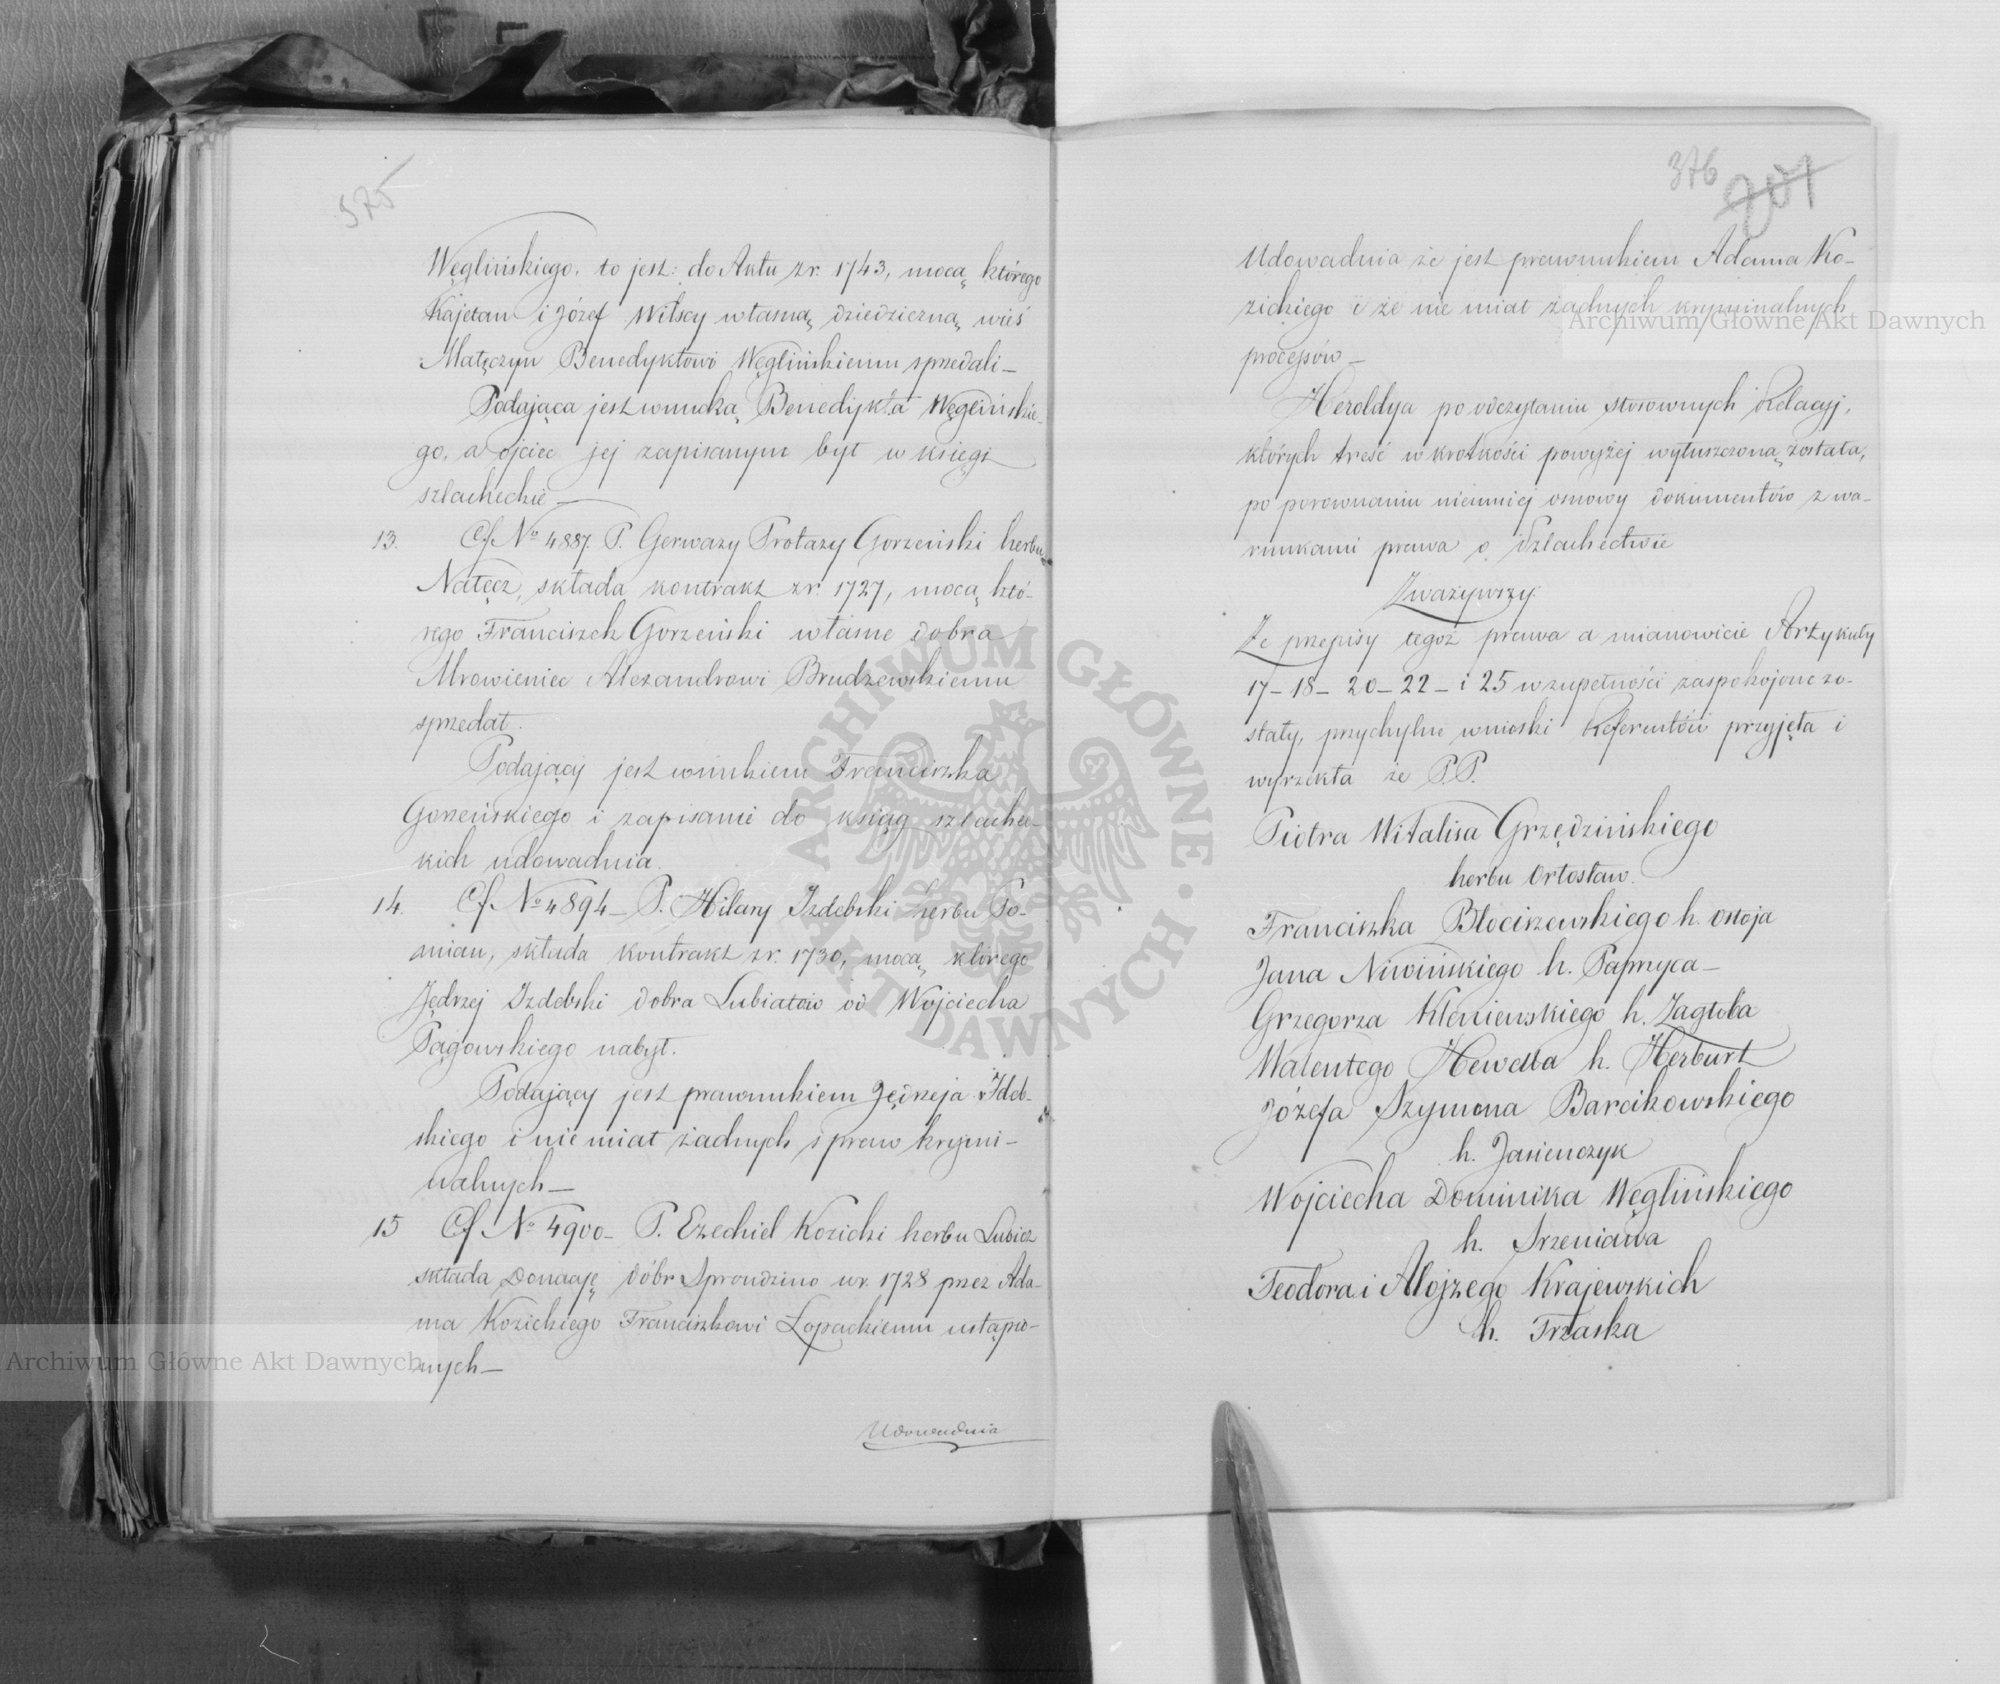 375
Węglińskiego, to jest: do Aktu z r. 1743, mocą którego
Kajetan i Józef Wilscy własną dziedziczną wieś
Matczyn Benedyktowi Węglińskiemu sprzedali —
Podająca jest wnuczką Benedykta Węglińskie-
go, a ojciec jej zapisanym był w księgi
szlacheckie —
13. Cf No 4887. P. Gerwazy Protazy Gorzeński herbu
Nałęcz, składa kontrakt z r. 1727, mocą któ-
rego Franciszek Gorzeński własne dobra
Mrowieniec Alexandrowi Brudzewskiemu
sprzedał.
Podający jest wnukiem Franciszka
Gorzeńskiego i zapisanie do ksiąg szlachec-
kich udowadnia.
14. Cf No 4894 — P. Hilary Izdebski herbu Po-
mian, składa kontrakt z r. 1730, mocą którego
Jędrzej Izdebski dobra Lubiatów od Wojciecha
Pągowskiego nabył.
Podający jest prawnukiem Jędrzeja Izdeb-
skiego i nie miał żadnych spraw krymi-
nalnych —
15 Cf No 4900 — P. Ezechiel Kozicki herbu Lubicz
składa Donację dóbr w r. 1728 przez Ada-
ma Kozickiego Franciszkowi Łopackiemu ustąpio-
nych —
Udowadnia
376 201
Udowadnia że jest prawnukiem Adama Ko-
zickiego i że nie miał żadnych kryminalnych
processów —
Heroldya po odczytaniu stosownych Relacyj,
których treść w krótkości powyżej wyłuszczoną została,
po porównaniu niemniej osnowy dokumentów z wa-
runkami prawa o Szlachectwie
Zważywszy:
Że przepisy tegoż prawa a mianowicie Artykuły
17 – 18 – 20 – 22 – i 25 w zupełności zaspokojone zo-
stały, przychylne wnioski Referentów przyjęła i
wyrzekła że P.P.
Piotra Witalisa Grzędzińskiego
herbu Ortosław.
Franciszka Błociszewskiego h. Ostoja
Jana Niwińskiego h. Paprzyca —
Grzegorza Kleniewskiego h. Zagłoba
Walentego Hewella h. Herburt
Józefa Szymona Barcikowskiego
h. Jasieńczyk
Wojciecha Dominika Węglińskiego
h. Srzeniawa
Teodora i Alojzego Krajewskich
h. Trzaska
Archiwum Główne Akt Dawnych
Archiwum Główne Akt Dawnych
ARCHIWUM GŁÓWNE AKT DAWNYCH